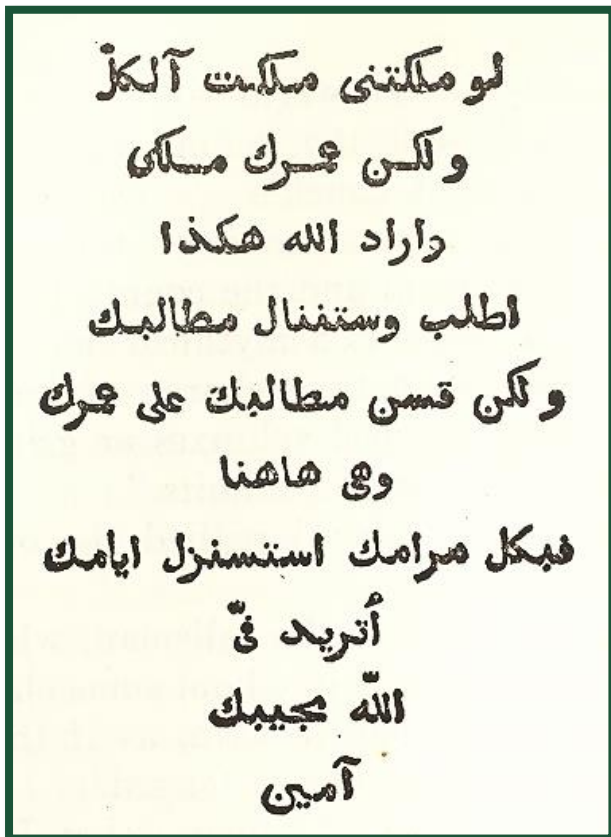 لو ملكتنى ملكت آلكلّ
ولكن عمرك ملكى
واراد الله هكذا
اطلب وستفنال مطالبك
ولكن قسن مطالبك على عمرك
وهى هاهنا
فبكل مرامك استسنزل ايامك
أتريد فىّ
اللّه مجيبك
آمين